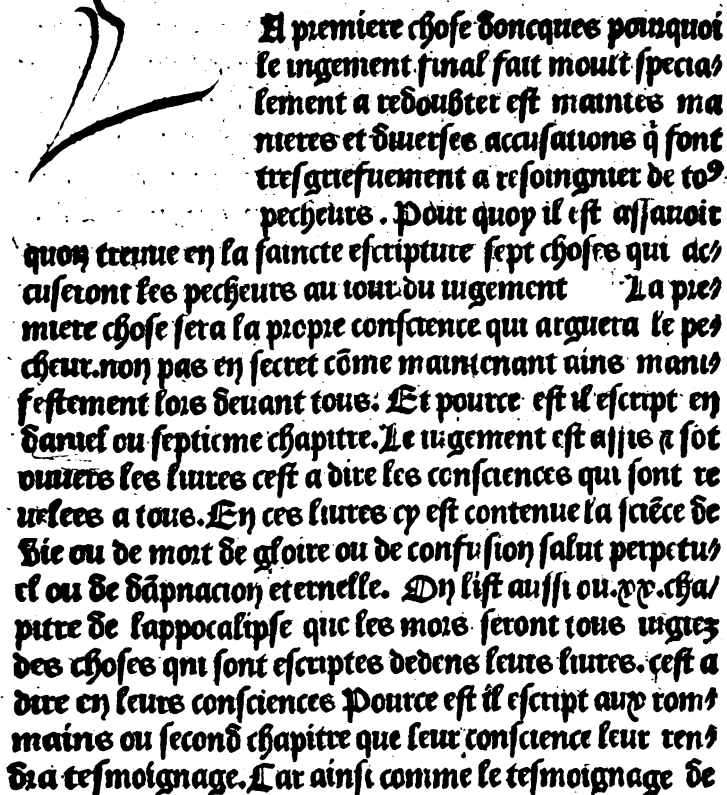 LA premiere chose doncques pourquoi
le iugement final fait moult specia⸗
lement a redoubter est maintes ma
nieres et diuerses accusations q̄ font
tresgriefuement a resoingnier de toꝰ
pecheurs . Pour quoy il est assauoir
quon treuue en la saincte escripture sept choses qui ac⸗
cuseront les pecheurs au iour du iugement La pre⸗
miere chose sera la propre conscience qui arguera le pe⸗
cheur.non pas en secret cōme maintenant ains mani⸗
festement lors deuant tous: Et pource est il escript en
daniel ou septieme chapitre.Le iugement est assis ⁊ sōt
ouuers les liures cest a dire les consciences qui sont re
uelees a tous.En ces liures cy est contenue la sciēce de
vie ou de mort de gloire ou de confusion salut perpetu⸗
el ou de dāpnacion eternelle. On list aussi ou.xx.cha/
pitre de lappocalipse que les mors seront tous iugiez
des choses qui sont escriptes dedens leurs liures.cest a
dire en leurs consciences Pource est il escript aux rom⸗
mains ou second chapitre que leur conscience leur ren⸗
dra tesmoignage.Car ainsi comme le tesmoignage de